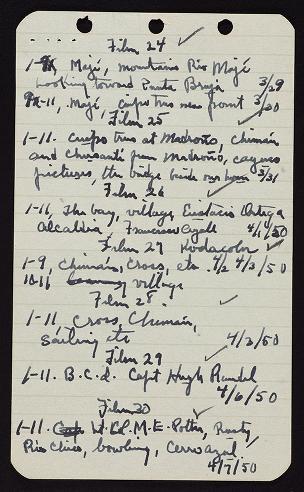 Film 24 ✓
1-9x Majé, mountains Rio Majé
looking toward Punta Bruja 3/29
9x-11, Majé, cuipo tree near point 3/30
Film 25
1-11. Cuipo trees at Madroño, Chimán
and Chusanti from Madroño, cayuco
pictures, the bridge beside our 3/31
Film 26
1-11, The bay, village, Eustacio Ortega
Alcaldia, Francisco Ayalle 4/1/50
Film 27 Kodacolor ✓
1-9, Chimán, Cross, etc. 4/2 4/3/50
10-11 village
Film 28. ✓
1-11 Cross, Chiman,
sailing etc 4/3/50
Film 29 ✓
1-11. B.C.d. Capt Hugh Randel
4/6/50
Film 30
1-11. Lt. Col. M.E. Potter, Rusty
Rio Chico, bowling, Cerro Azul
4/7/50